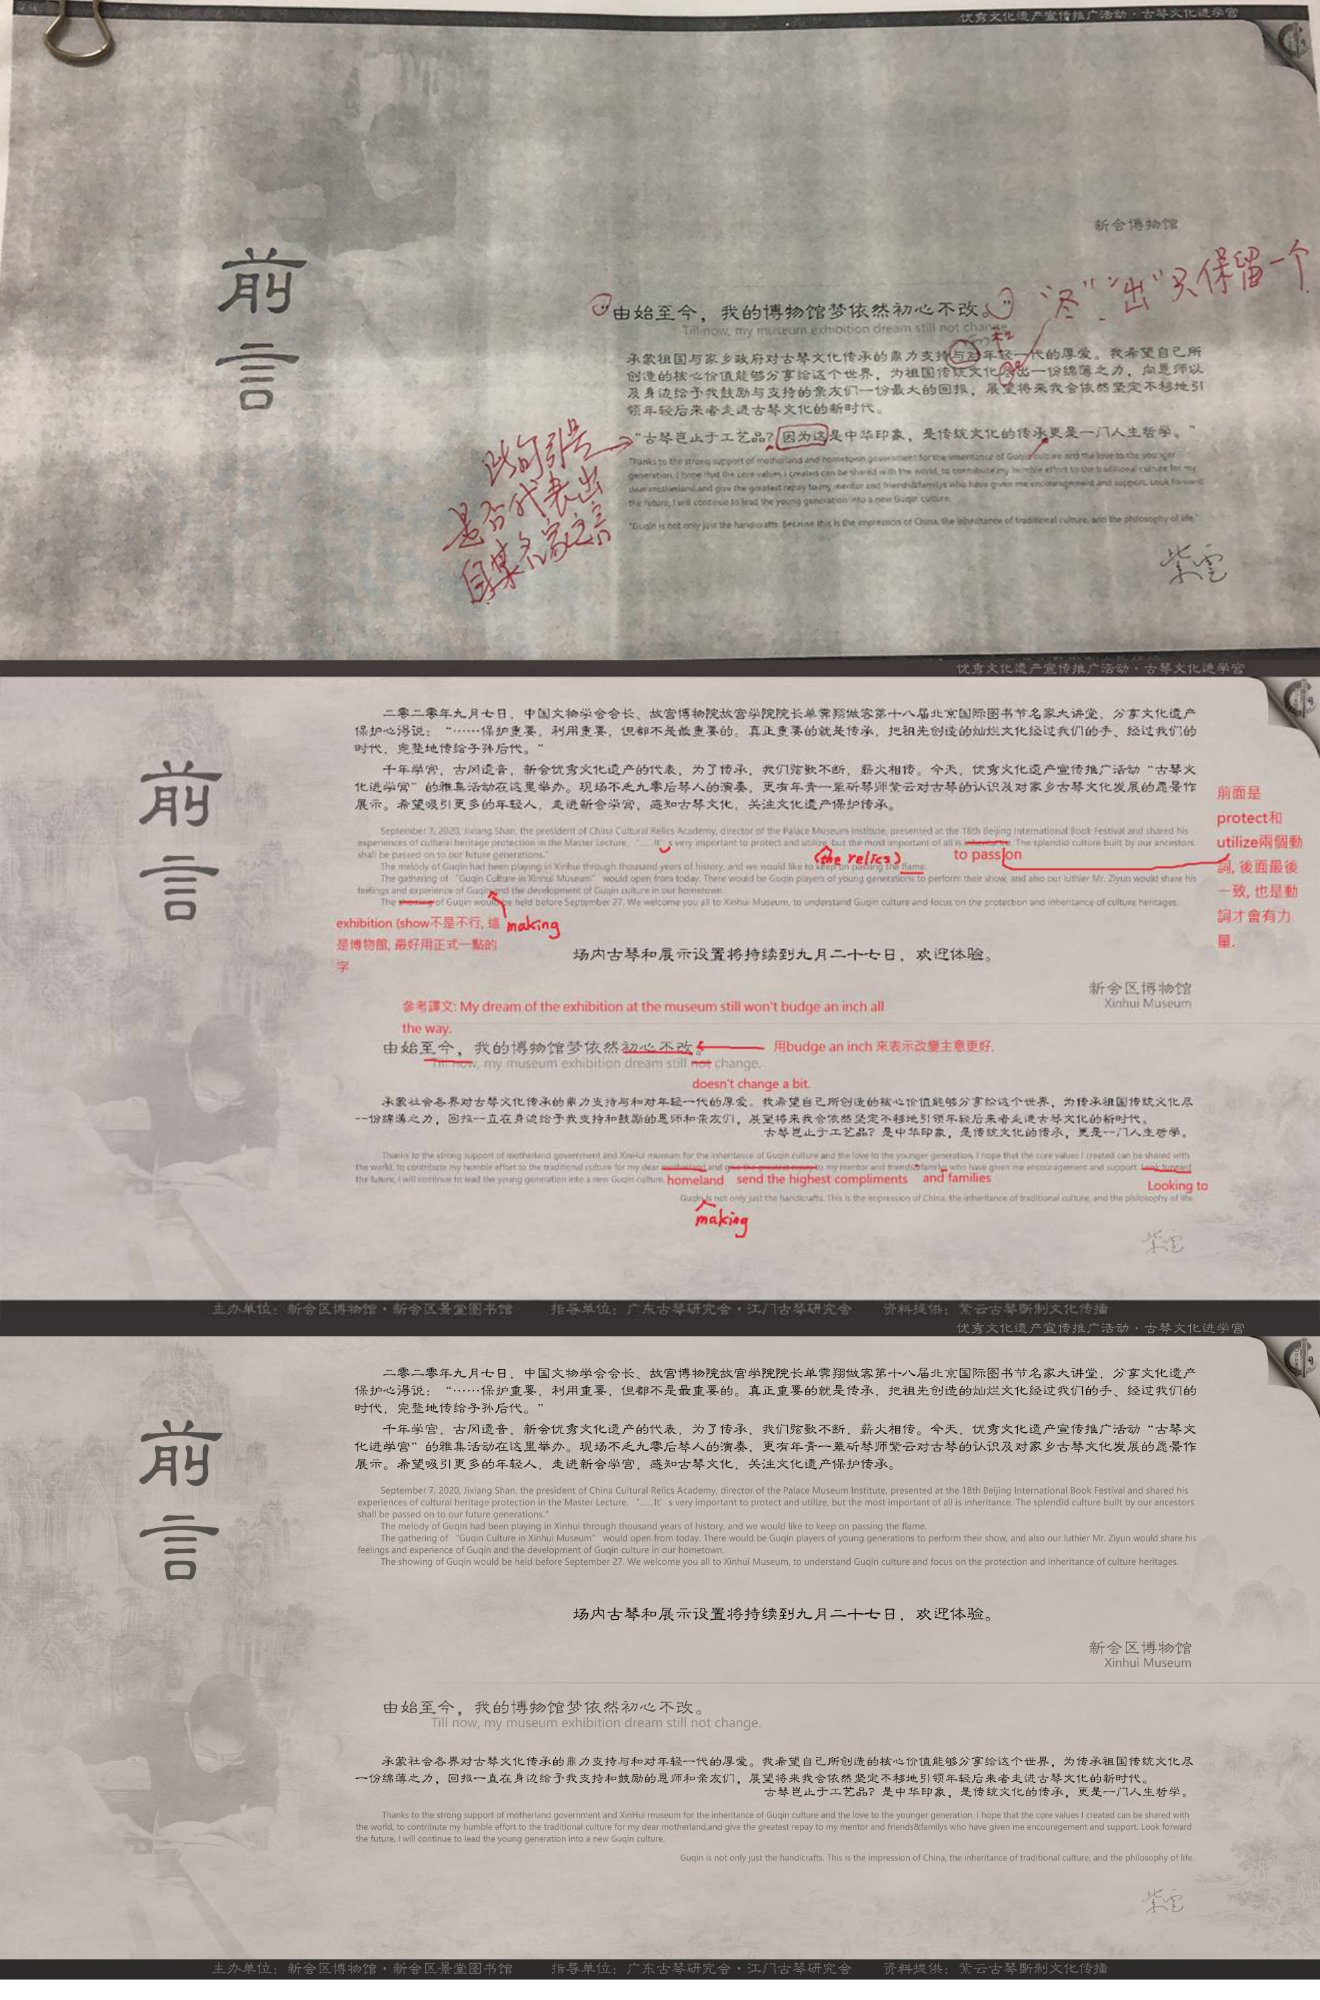 优秀文化遗产宣传推广活动·古琴文化进学宫
前言
新会博物馆
“尽”“出”只保留一个
“由始至今，我的博物馆梦依然初心不改。”
Till now, my museum exhibition dream still not change.
和
承蒙祖国与家乡政府对古琴文化传承的鼎力支持与对年轻一代的厚爱。我希望自己所
创造的核心价值能够分享给这个世界，为祖国传统文化尽出一份绵薄之力，向恩师以
及身边给予我鼓励与支持的亲友们一份最大的回报，展望将来我会依然坚定不移地引
领年轻后来者走进古琴文化的新时代。
“古琴岂止于工艺品？因为这是中华印象，是传统文化的传承更是一门人生哲学。”
此句引号
是否代表出
自某名家之言
Thanks to the strong support of motherland and hometown government for the inheritance of Guqin culture and the love to the younger
generation. I hope that the core values I created can be shared with the world, to contribute my humble effort to the traditional culture for my
dear motherland,and give the greatest repay to my mentor and friends&familys who have given me encouragement and support. Look forward
the future, I will continue to lead the young generation into a new Guqin culture.
"Guqin is not only just the handicrafts. Because this is the impression of China, the inheritance of traditional culture, and the philosophy of life."
紫云
优秀文化遗产宣传推广活动·古琴文化进学宫
前言
二零二零年九月七日，中国文物学会会长、故宫博物院故宫学院院长单霁翔做客第十八届北京国际图书节名家大讲堂，分享文化遗产
保护心得说：“……保护重要，利用重要，但都不是最重要的。真正重要的就是传承，把祖先创造的灿烂文化经过我们的手、经过我们的
时代，完整地传给子孙后代。”
千年学宫，古风遗音，新会优秀文化遗产的代表，为了传承，我们弦歌不断，薪火相传。今天，优秀文化遗产宣传推广活动“古琴文
化进学宫”的雅集活动在这里举办。现场不乏九零后琴人的演奏，更有年青一辈斫琴师紫云对古琴的认识及对家乡古琴文化发展的愿景作
展示。希望吸引更多的年轻人，走进新会学宫，感知古琴文化，关注文化遗产保护传承。
September 7, 2020, Jixiang Shan, the president of China Cultural Relics Academy, director of the Palace Museum Institute, presented at the 18th Beijing International Book Festival and shared his
experiences of cultural heritage protection in the Master Lecture. “......It’ s very important to protect and utilize, but the most important of all is inheritance. The splendid culture built by our ancestors
shall be passed on to our future generations."
(the relics)
to pass on
The melody of Guqin had been playing in Xinhui through thousand years of history, and we would like to keep on passing the flame.
The gathering of “Guqin Culture in Xinhui Museum” would open from today. There would be Guqin players of young generations to perform their show, and also our luthier Mr. Ziyun would share his
feelings and experience of Guqin and the development of Guqin culture in our hometown.
The showing of Guqin would be held before September 27. We welcome you all to Xinhui Museum, to understand Guqin culture and focus on the protection and inheritance of culture heritages.
前面是
protect和
utilize兩個動
詞, 後面最後
一致, 也是動
詞才會有力
量.
exhibition (show不是不行, 這
是博物館, 最好用正式一點的
字
making
场内古琴和展示设置将持续到九月二十七日，欢迎体验。
新会区博物馆
Xinhui Museum
參考譯文: My dream of the exhibition at the museum still won't budge an inch all
the way.
由始至今，我的博物馆梦依然初心不改。
用budge an inch 來表示改變主意更好.
Till now, my museum exhibition dream still not change.
doesn't change a bit.
承蒙社会各界对古琴文化传承的鼎力支持与和对年轻一代的厚爱。我希望自己所创造的核心价值能够分享给这个世界，为传承祖国传统文化尽
一份绵薄之力，回报一直在身边给予我支持和鼓励的恩师和亲友们，展望将来我会依然坚定不移地引领年轻后来者走进古琴文化的新时代。
古琴岂止于工艺品？是中华印象，是传统文化的传承，更是一门人生哲学。
Thanks to the strong support of motherland government and XinHui museum for the inheritance of Guqin culture and the love to the younger generation. I hope that the core values I created can be shared with
the world, to contribute my humble effort to the traditional culture for my dear motherland,and give the greatest repay to my mentor and friends&familys who have given me encouragement and support. Look forward
the future, I will continue to lead the young generation into a new Guqin culture.
homeland
send the highest compliments
and families
Looking to
Guqin is not only just the handicrafts. This is the impression of China, the inheritance of traditional culture, and the philosophy of life.
making
紫云
主办单位：新会区博物馆·新会区景堂图书馆 指导单位：广东古琴研究会·江门古琴研究会 资料提供：紫云古琴斫制文化传播
优秀文化遗产宣传推广活动·古琴文化进学宫
前言
二零二零年九月七日，中国文物学会会长、故宫博物院故宫学院院长单霁翔做客第十八届北京国际图书节名家大讲堂，分享文化遗产
保护心得说：“……保护重要，利用重要，但都不是最重要的。真正重要的就是传承，把祖先创造的灿烂文化经过我们的手、经过我们的
时代，完整地传给子孙后代。”
千年学宫，古风遗音，新会优秀文化遗产的代表，为了传承，我们弦歌不断，薪火相传。今天，优秀文化遗产宣传推广活动“古琴文
化进学宫”的雅集活动在这里举办。现场不乏九零后琴人的演奏，更有年青一辈斫琴师紫云对古琴的认识及对家乡古琴文化发展的愿景作
展示。希望吸引更多的年轻人，走进新会学宫，感知古琴文化，关注文化遗产保护传承。
September 7, 2020, Jixiang Shan, the president of China Cultural Relics Academy, director of the Palace Museum Institute, presented at the 18th Beijing International Book Festival and shared his
experiences of cultural heritage protection in the Master Lecture. “......It’ s very important to protect and utilize, but the most important of all is inheritance. The splendid culture built by our ancestors
shall be passed on to our future generations."
The melody of Guqin had been playing in Xinhui through thousand years of history, and we would like to keep on passing the flame.
The gathering of “Guqin Culture in Xinhui Museum” would open from today. There would be Guqin players of young generations to perform their show, and also our luthier Mr. Ziyun would share his
feelings and experience of Guqin and the development of Guqin culture in our hometown.
The showing of Guqin would be held before September 27. We welcome you all to Xinhui Museum, to understand Guqin culture and focus on the protection and inheritance of culture heritages.
场内古琴和展示设置将持续到九月二十七日，欢迎体验。
新会区博物馆
Xinhui Museum
由始至今，我的博物馆梦依然初心不改。
Till now, my museum exhibition dream still not change.
承蒙社会各界对古琴文化传承的鼎力支持与和对年轻一代的厚爱。我希望自己所创造的核心价值能够分享给这个世界，为传承祖国传统文化尽
一份绵薄之力，回报一直在身边给予我支持和鼓励的恩师和亲友们，展望将来我会依然坚定不移地引领年轻后来者走进古琴文化的新时代。
古琴岂止于工艺品？是中华印象，是传统文化的传承，更是一门人生哲学。
Thanks to the strong support of motherland government and XinHui museum for the inheritance of Guqin culture and the love to the younger generation. I hope that the core values I created can be shared with
the world, to contribute my humble effort to the traditional culture for my dear motherland,and give the greatest repay to my mentor and friends&familys who have given me encouragement and support. Look forward
the future, I will continue to lead the young generation into a new Guqin culture.
Guqin is not only just the handicrafts. This is the impression of China, the inheritance of traditional culture, and the philosophy of life.
紫云
主办单位：新会区博物馆·新会区景堂图书馆 指导单位：广东古琴研究会·江门古琴研究会 资料提供：紫云古琴斫制文化传播